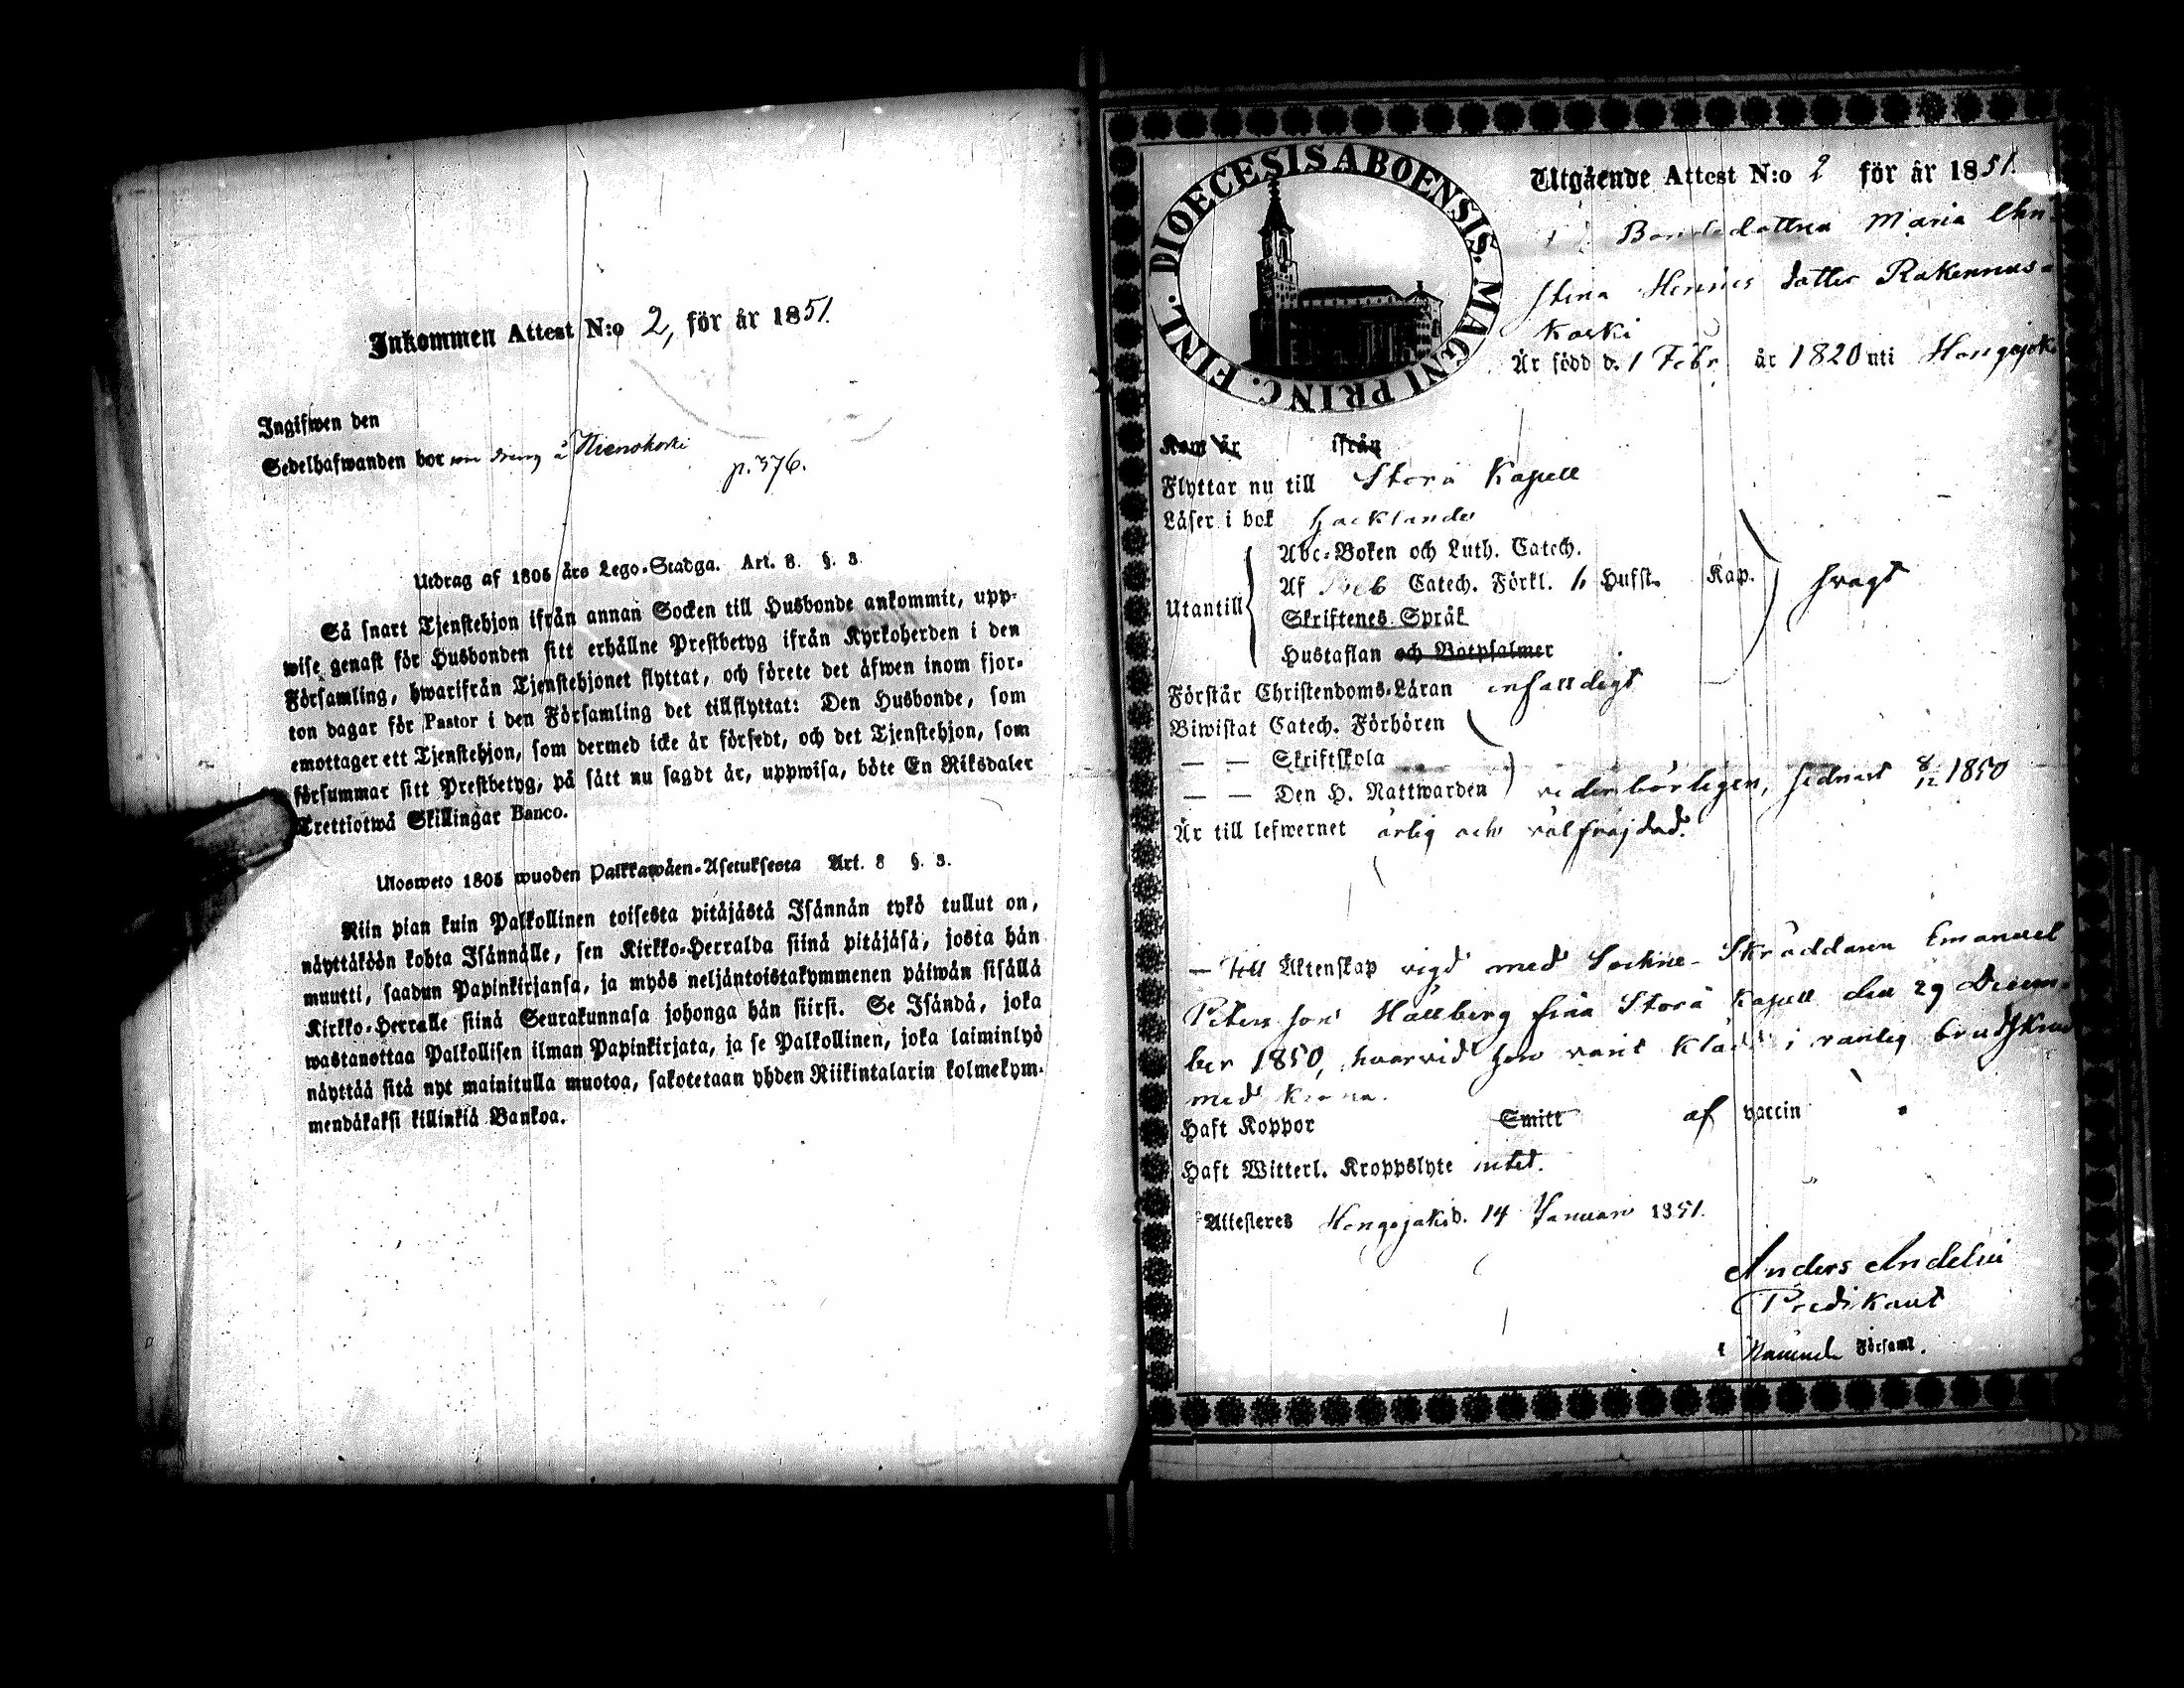 Inkommen Attest N:o 2, för år 1851.
Ingifwen den
Sedelhafwanden bor som dräng å Nienokoski
p. 376.
Utdrag af 1805 års Lego-Stadga. Art. 8. §. 3.
Så snart Tjenstehjon ifrån annan Socken till Husbonde ankommit, upp-
wise genast för Husbonden sitt erhållne Prestbetyg ifrån Kyrkoherden i den
Församling, hwarifrån Tjenstehjonet flyttat, och förete det äfwen inom fjor-
ton dagar för Pastor i den Församling det tillflyttat: Den Husbonde, som
emottager ett Tjenstehjon, som dermed icke är försedt, och det Tjenstehjon, som
försummar sitt Prestbetyg, på sätt nu sagdt är, uppwisa, böte En Riksdaler
Trettiotwå Skillingar Banco.
Ulosweto 1805 wuoden Palkkawäen-Asetuksesta Art. 8 §. 3.
Niin pian kuin Palkollinen toisesta pitäjästä Isännän tykö tullut on,
näyttäköön kohta Isännälle, sen Kirkko-Herralda siinä pitäjäsä, josta hän
muutti, saadun Papinkirjansa, ja myös neljäntoistakymmenen päiwän sisällä
Kirkko-Herralle siinä Seurakunnasa johonga hän siirsi. Se Isändä, joka
wastanottaa Palkollisen ilman Papinkirjata, ja se Palkollinen, joka laiminlyö
näyttää sitä nyt mainitulla muotoa, sakotetaan yhden Riikintalarin kolmekym-
mendäkaksi killinkiä Bankoa.
DIOECESIS ABOENSIS. MAGNI PRINC. FINL.
Utgående Attest N:o 2 för år 1851.
Bondedottren Maria Chri-
stina Henrics dotter Rakennus-
koski
Är född d. 1 Febr. år 1820 uti Hongojoki
Kom år ifrån
Flyttar nu till Storå Kapell
Läser i bok
Utantill
Abc-Boken och Luth. Catech.
Af Sveb Catech. Förkl. 6 Hufst. Kap.
Skriftenes Språk
Hustaflan och Botpsalmer
svagt
Förstår Christendoms-Läran enfalldigt
Biwistat Catech. Förhören
— — Skriftskola
— — Den H. Nattwarden vederbörligen, sednast 8/12 1850
Är till lefwernet ärlig och välfräjdad.
— Till Äktenskap vigd med Sockne-Skräddaren Emanuel
Petersson Hällberg från Storå Kapell den 29 Decem-
ber 1850, hvarvid hon varit klädd i vanlig brudskrud
med krona.
Haft Koppor Smitt af vaccin
Haft Witterl. Kroppslyte intet.
Attesteres Hongojoki d. 14 Januari 1851.
Anders Andelin
Predikant
i Församl.